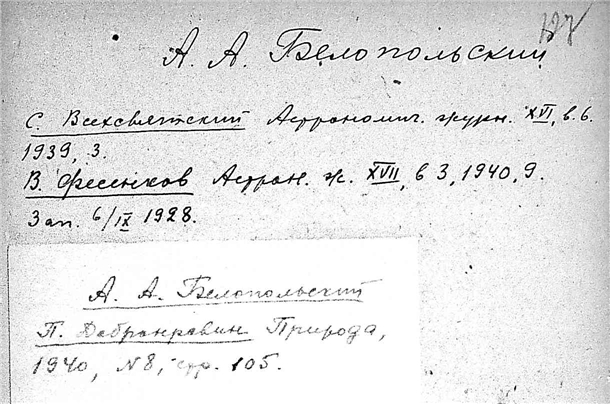 127
А. А. Белопольский
С. Всехсвятский Астрономич. журн. XVI, в. 6.
1939, 3.
В. Фесенков Астрон. ж. XVII, в 3, 1940, 9.
Зап. 6/IX 1928.
А. А. Белопольский
П. Добронравин Природа,
1940, N 8, стр. 105.